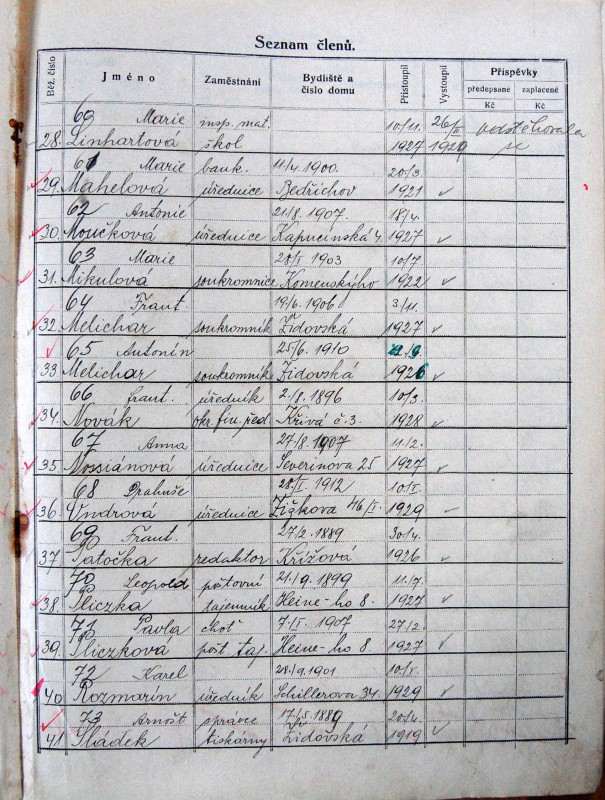 Seznam členů.
Běž. číslo Jméno Zaměstnání Bydliště a číslo domu Přistoupil Vystoupil Příspěvky
předepsané zaplacené
Kč Kč
60 Marie insp. mat. 10/11. 26/II
28. Linhartová škol 1927 1929 se
61 Marie bank. 11/4. 1900. 20/3.
29. Mahelová úřednice Bedřichov 1921
62 Antonie 21/8. 1907. 18/4.
30. Moučková úřednice Kapucínská 4. 1927
63 Marie 28/II 1903 10/7
31. Mikulová soukromnice Komenskýho 1922
64 Frant. 19/6. 1906 3/11.
32. Melichar soukromník Židovská 1927
65 Antonín 25/6. 1910
33 Melichar soukromník Židovská 1926
66 Frant. úředník 2./8. 1896 10/3.
34. Novák okr. fin. řed. Křivá č. 3. 1928
67 Anna 27/8. 1907 11/2.
35. Nossiánová úřednice Severinova 25 1927
68 Drahuše 28/II. 1912 10/I.
36. Ondrová úřednice Žižkova 46/I. 1929
69 Frant. 27/2. 1889 30/4.
37. Patočka redaktor Křížová 1926
70 Leopold poštovní 21./9. 1899 11./7.
38. Pliczka tajemník Heine-ho 8. 1927
71 Pavla choť 7/I. 1907 27/2.
39. Pliczkova pošt. taj. Heine-ho 8 1927
72 Karel 28./9. 1901 10/I.
40. Rozmarín úředník Schillerova 34. 1929
73 Arnošt správce 17/5. 1889 20/4.
41 Sládek tiskárny Židovská 1919